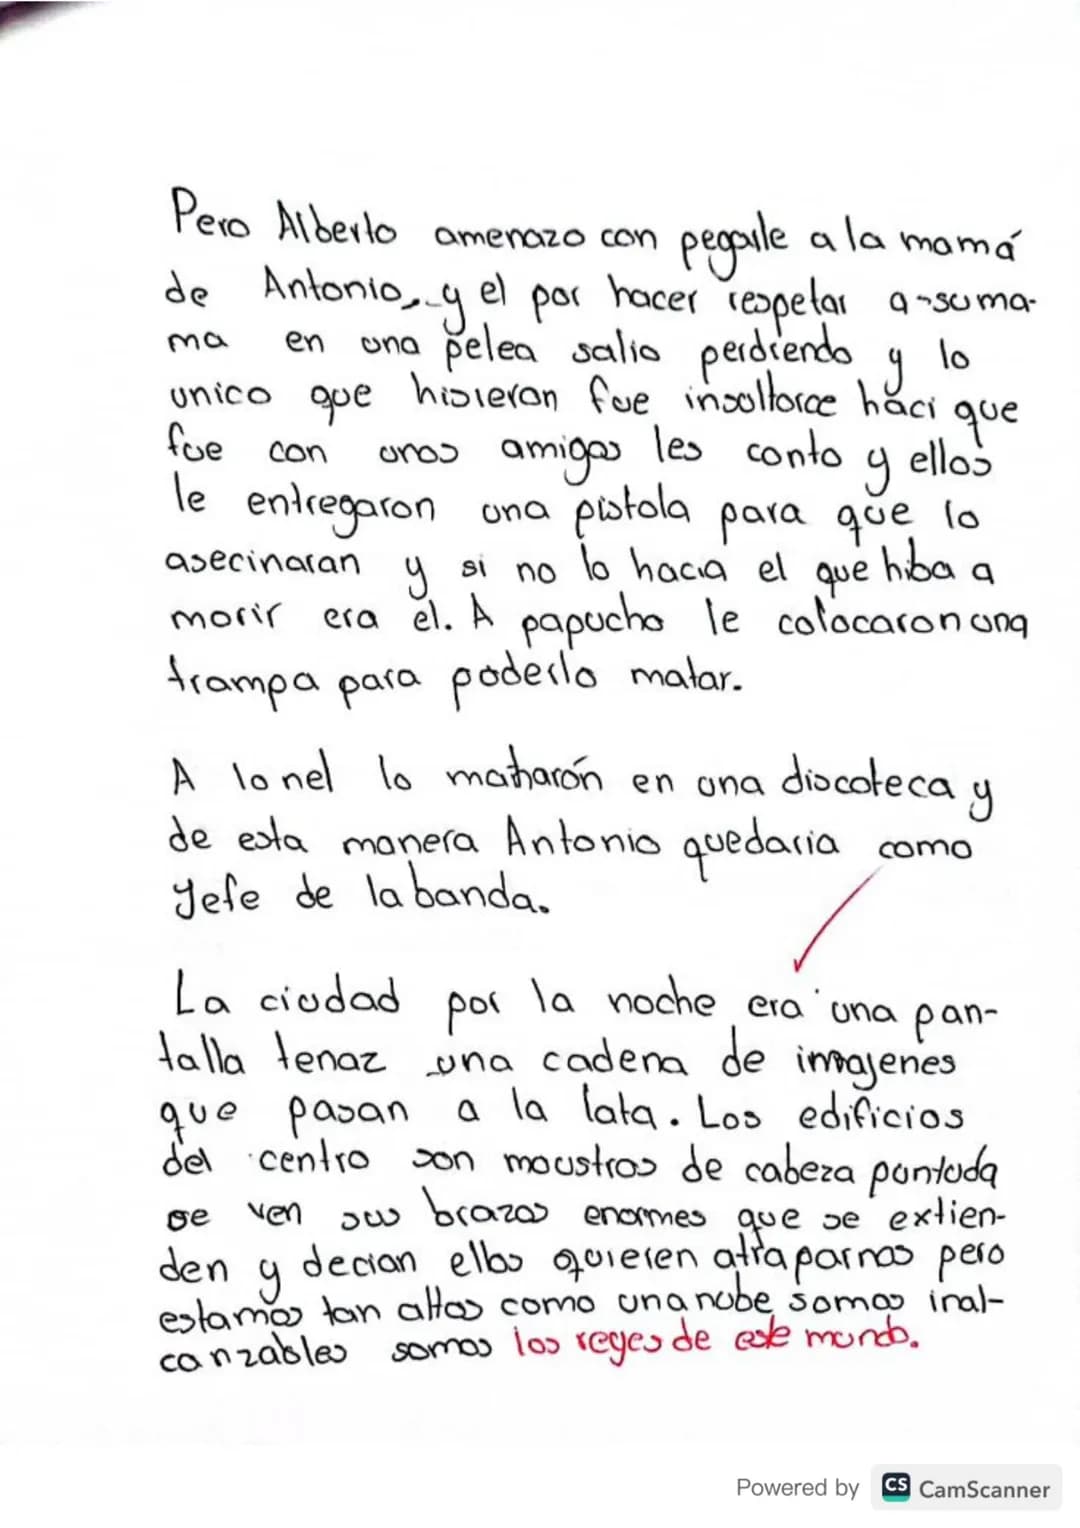 Pero Alberto amenazo con pegarle a la mamá
de Antonio, y el por hacer respetar a su ma-
ma en una pelea salio perdiendo y lo
unico que hisieron fue insoltorce haci que
fue con unos amigos les conto y ellos
le entregaron una pistola para que lo
asecinaran y si no lo hacia el que hiba a
morir era el. A papucho le colocaron una
trampa para poderlo matar.
A lonel lo matharón en una discoteca y
de esta manera Antonio quedaria como
Jefe de la banda.
La ciudad por la noche era una pan-
talla tenaz una cadena de imagenes
que pasan a la lata. Los edificios
del centro son moustros de cabeza puntuda
se ven sus brazos enormes que se extien-
den y decian ellos quieren atraparnos pero
estamos tan altos como una nube somos inal-
canzables somos los reyes de este mundo.
Powered by CS CamScanner